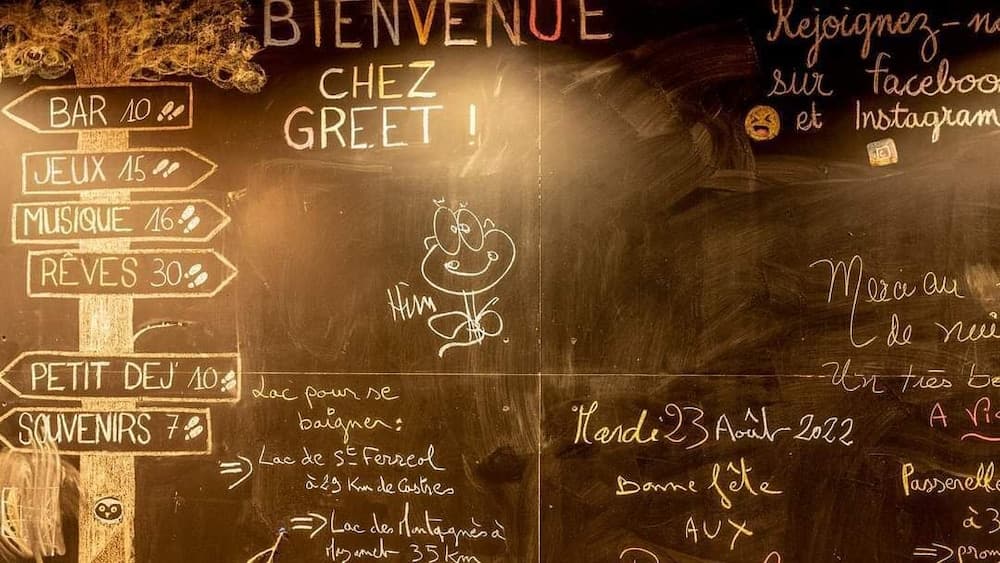 BIENVENUE
CHEZ
GREET !
Rejoignez-n
sur faceboo
et Instagram
BAR 10
JEUX 15
MUSIQUE 16
RÊVES 30
PETIT DEJ' 10
SOUVENIRS 7
Him
Lac pour se
baigner:
=> Lac de St Ferreol
à 29 Km de Castres
=> Lac des Montagnès à
Mazamet 35 Km
Mardi 23 Août 2022
Bonne fête
AUX
Merci au
de nui
Un très be
A Vi
Passerelle
à 3
=> prom